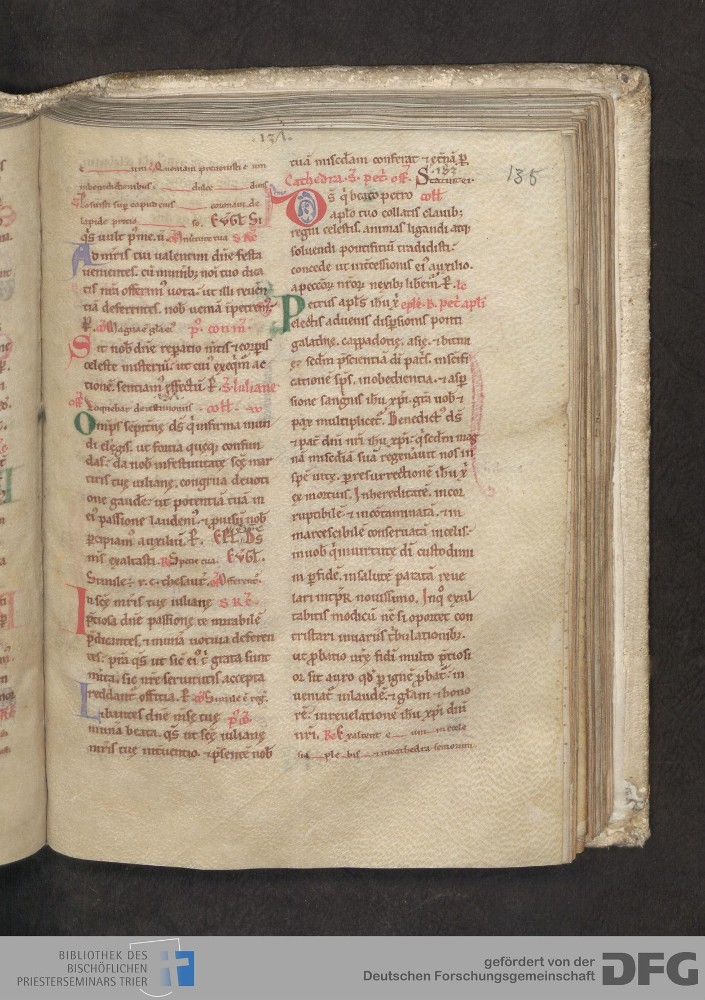 131.
135
um Quoniam prevenisti e um
inbenedictionibus dulce dinis
Posuisti sup caput eius coronam de
lapide precio so. EVGL Si
q̄s uult p᷎ me. ū.
Ad mr̄is tui ualentini dn̄e festa
uenientes. cū munib; noi tuo dica
tis nr̄a offerim᷎ uota. ut illi reuen
tiā deferentes. nob ueniā ipetrem᷎.
R̄. Magna ē glā ei᷎ p̄. com̄.
Sit nob dn̄e reparatio m̄tis & corp̄is
celeste misteriū. ut cui᷎ exeq̄im᷎ ac
tionē. sentiam᷎ effectū. S. Iuliane
off Loquebar de testimoniis coll.
Omp̄s sepit̄ne dS q̄ infirma mun
di elegis. ut fortia queq; confun
das. da nob infestiuitate scē mar
tiris tue iuliane. congrua deuoti
one gaude. ut potentiā tuā in
ei᷎ passione laudem᷎. & puisū nob
p̄cipiam᷎ auxiliū.
mS exaltasti. EVGL.
Simile ē r. c. thesaur.
In scē mr̄is tue iuliane S R E
p̄tiosa dn̄e passione te mirabilē
p̄dicantes. & munia uotiua deferen
tes. p̄stā q̄s ut sic ei᷎ t̄ grata sunt
m̄ita. sic nr̄e seruitutis accepta
reddant᷎ officia.
Libantes dn̄e mse tue p̄. co.
munia beata. q̄s ut scē iuliane
mr̄is tue int̄uentio. & p̄sentē nob
tuā misc̄diam conferat & et̄nā. p̄
Cathedra. S. pet. off. Statuit ei.
DS q̄ beato petro coll
aplō tuo collatis clauib;
regni celestis. animas ligandi atq;
soluendi pontificiū tradidisti.
concede ut int̄cessionis ei᷎ auxilio.
a peccōꝝ nr̄oꝝ nexib; liberem᷎.
Petrus apls ihu x̄ epl̄e. B. pet. apl̄i
electis aduenis disp̄sionis ponti
galathie. cappadotie. asie. & bitinie
sc̄dm p̄scientiā di patr̄is. insc̄ifi
cationē sp̄s. inobedientia. & asp̄
sione sanguīs ihu xp̄i. grā uob &
pax multiplicet᷎. Benedict᷎ dS
& pat̄ dn̄i nr̄i ihu xp̄i. q̄ sc̄dm mag
nā misc̄diā suā regenauit nos in
spē uite. p̄ resurrectionē ihu x̄
ex mortuis. In hereditatē. incor
ruptibilē & incōtaminatā. & in
marcescibilē conseruatā incelis.
inuob q̄ inuirtute di custodimi
ni p̄ fidē. in salutē paratā reue
lari intp̄r nouissimo. In q̄ exul
tabitis modicū nc̄ si oportet con
tristari inuariis t̄bulationib;.
ut p̄batio ur̄e fidei multo p̄tiosi
or sit auro qd p̄ ignē p̄bat᷎. in
ueniat᷎ inlaudē. & glam & hono
rē. inreuelatione ihu xp̄i dn̄i
nr̄i. Exaltent e um in eccle
sia ple bis & incathedra seniorum
BIBLIOTHEK DES
BISCHÖFLICHEN
PRIESTERSEMINARS TRIER
gefördert von der
Deutschen Forschungsgemeinschaft
DFG